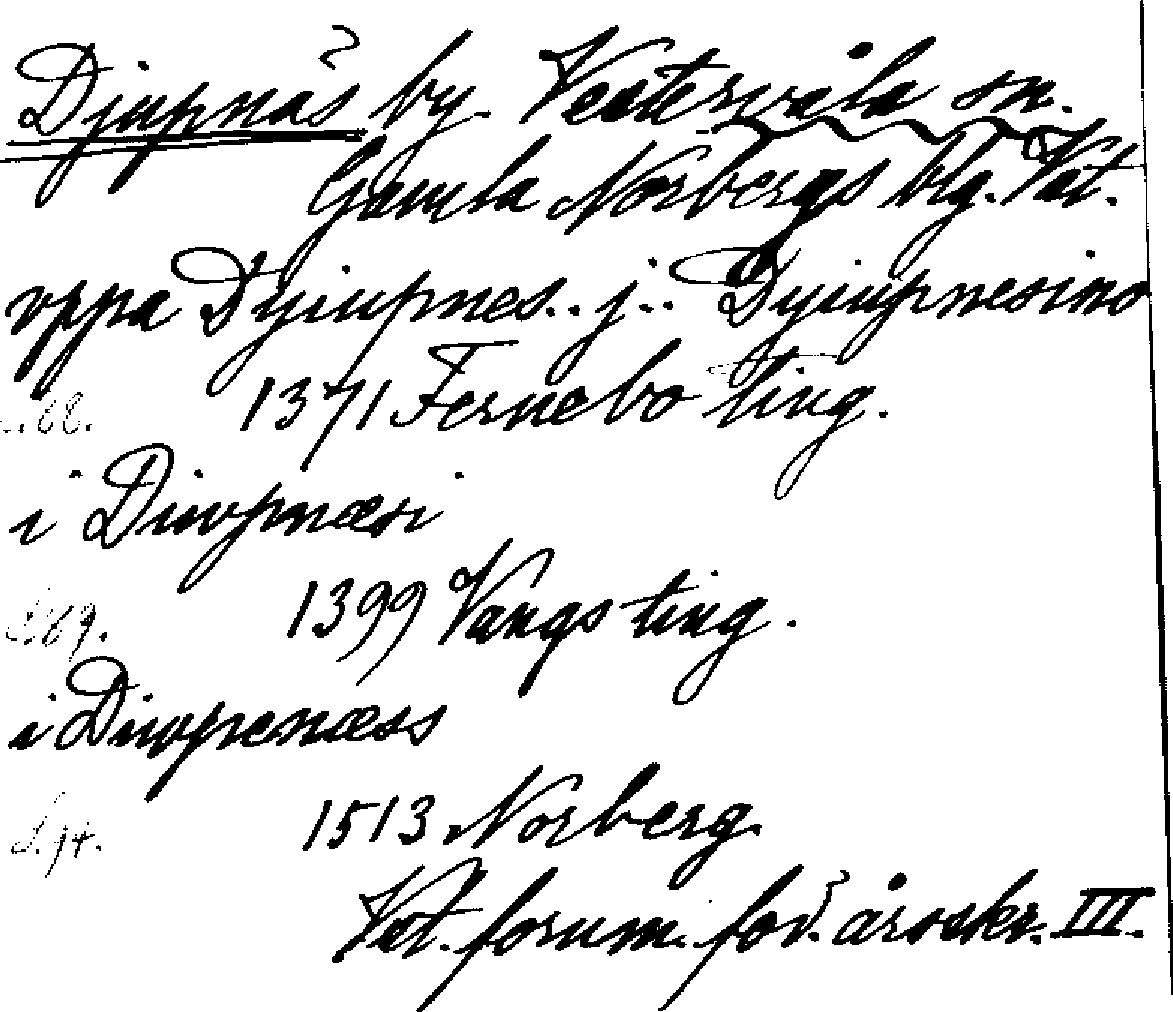 Djupnäs by. Västervåla sn.
Gamla Norbergs blg. Vst.
vppa Dyiupnes.. j.. Dyiupnesino
S. 68. 1371 Fernebo ting.
i Diwpnæsi
S. 69. 1399 Vangs ting.
i Diwpenæss
S. 94. 1513 Norberg.
Vst. fornm. för. årsskr. III.